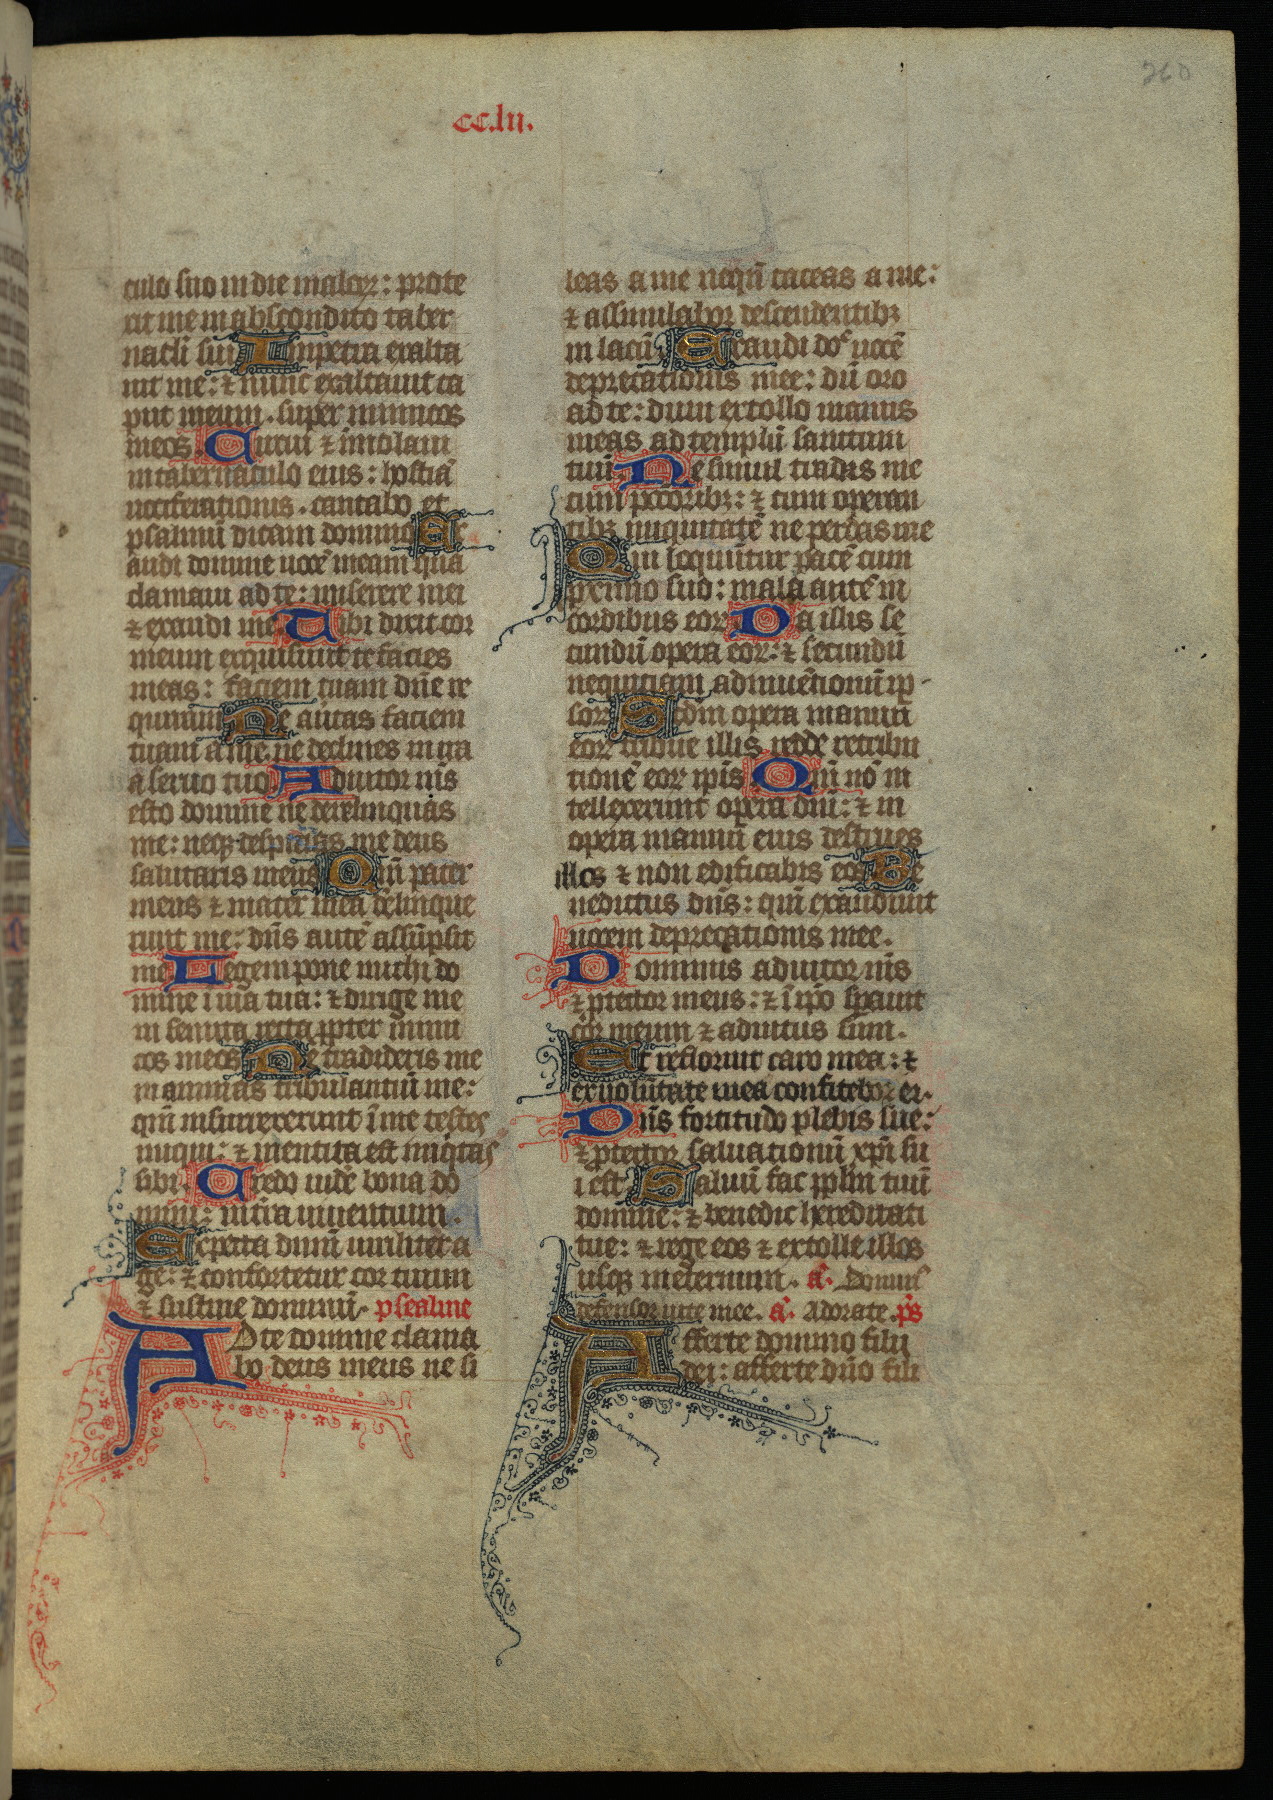 260
cc.lii.
culo suo in die maloꝝ: prote
xit me in abscondito taber
nacl̄i sui In petra exalta
uit me: ⁊ nunc exaltauit ca
put meum . super inimicos
meos. Circui ⁊ īmolaui
in tabernaculo eius: hostiā
uociferationis . cantabo et
psalmū dicam domino Ex
audi domine uocē meam qua
clamaui ad te: miserere mei
⁊ exaudi me. Tibi dixit cor
meum exquisiuit te facies
meas: faciem tuam dn̄e re
quiram Ne auertas faciem
tuam a me. ne declines in ira
a seruo tuo. Adiutor m̄s
esto domine ne derelinquas
me: neqꝫ despicias me deus
salutaris meus Qm̄ pater
meus ⁊ mater mea derelinque
runt me: dn̄s autē assūpsit
me Legem pone michi do
mine ī uia tua: ⁊ dirige me
in semita recta ꝓpter inimi
cos meos Ne tradideris me
in animas tribulantiū me:
qm̄ insurrexerunt ī me testes
iniqui: ⁊ mentita est iniq̄tas
sibi. Credo uidē bona do
mini: in t̄ra uiuentium .
Expecta dnm̄ uiriliter a
ge: ⁊ confortetur cor tuum
⁊ sustine dominū. psealme
Ad te domine clama
bo deus meus ne si
leas a me neq̄n taceas a me:
⁊ assimilabor descendentibꝫ
in lacū. Exaudi dōe uocē
deprecationis mee: dū oro
ad te: dum extollo manus
meas ad templū sanctum
tuū. Ne simul tradas me
cum peccoribꝫ: ⁊ cum operan
tibꝫ iniquitatē ne perdas me
Qui loquūtur pacē cum
ꝓximo suo: mala autē in
cordibus eoꝝ. Da illis se
cundū opera eoꝝ: ⁊ secundū
nequitiam adinuētionū ip-
soꝝ Scdm̄ opera manuū
eoꝝ tribue illis redde retribu
tionē eoꝝ ip̄is Qm̄ nō in
tellexerunt opera dnī: ⁊ in
opera manuū eius destrues
illos ⁊ non edificabis eos. Be
nedictus dn̄s: qm̄ exaudiuit
uocem deprecationis mee.
Dominus adiutor m̄s
⁊ ꝓtector meus: ⁊ ī ip̄o sꝑauit
cor meum ⁊ adiutus sum.
Et refloruit caro mea: ⁊
ex uolūtate mea confitebor ei.
Dn̄s fortitudo plebis sue:
⁊ ꝓtector saluationū xp̄i su
i est Saluū fac ppl̄m tuū
domine: ⁊ benedic hereditati
tue: ⁊ rege eos ⁊ extolle illos
usqꝫ ineternum. a᷒. Dominꝰ
defensor uite mee. a᷒. Adorate. ps̄
Afferte domino filii
dei: afferte dn̄o fili